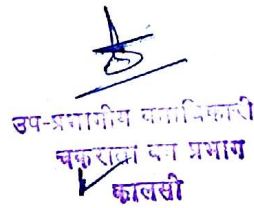 उप-प्रभागीय वनाधिकारी
चकराता वन प्रभाग
कालसी